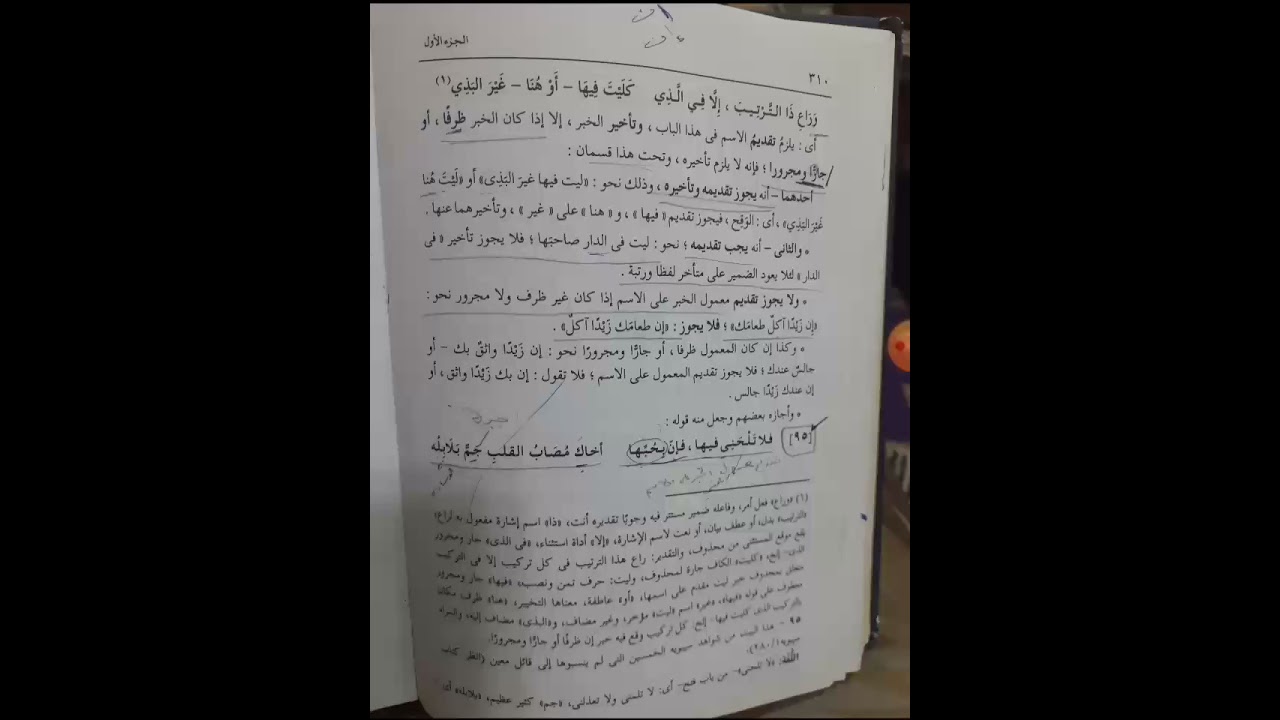 الجزء الأول
٣١٠
وَرَاعِ ذَا التَّرْتِيبَ ، إِلَّا فِي الَّذِي كَلَيْتَ فِيهَا – أَوْ هُنَا – غَيْرَ البَذِي (١)
أى : يلزمُ تقديمُ الاسم فى هذا الباب ، وتأخير الخبر ، إلا إذا كان الخبر ظرفًا ، أو
جارًّا ومجرورا ؛ فإنه لا يلزم تأخيره ، وتحت هذا قسمان :
أحدهما – أنه يجوز تقديمه وتأخيره ، وذلك نحو : «ليت فيها غيرَ البَذِى» أو «لَيْتَ هُنا
غَيْرَ البَذِي» ، أى : الوَقِح ، فيجوز تقديم «فيها» ، و « هنا » على « غير » ، وتأخيرهما عنها .
* والثانى – أنه يجب تقديمه ؛ نحو : ليت فى الدار صاحبَها ؛ فلا يجوز تأخير « فى
الدار » لئلا يعود الضمير على متأخر لفظا ورتبة .
* ولا يجوز تقديم معمول الخبر على الاسم إذا كان غير ظرف ولا مجرور نحو :
«إن زَيْدًا آكلٌ طعامَك» ؛ فلا يجوز : «إن طعامَك زَيْدًا آكلٌ» .
* وكذا إن كان المعمول ظرفا ، أو جارًّا ومجرورًا نحو : إن زَيْدًا واثقٌ بك – أو
جالسٌ عندك ؛ فلا يجوز تقديم المعمول على الاسم ؛ فلا تقول : إن بك زَيْدًا واثق ، أو
إن عندك زَيْدًا جالس .
* وأجازه بعضهم وجعل منه قوله :
[٩٥] فلا تَلْحَنِى فيها ، فإنّ بِحُبِّها أخاكَ مُصَابُ القلبِ جَمٌّ بَلابِلُه
(١) «وراع» فعل أمر، وفاعله ضمير مستتر فيه وجوبًا تقديره أنت، «ذا» اسم إشارة مفعول به لراع
«الترتيب» بدل، أو عطف بيان، أو نعت لاسم الإشارة، «إلا» أداة استثناء، «فى الذى» جار ومجرور
يقع موقع المستثنى من محذوف، والتقدير: راع هذا الترتيب فى كل تركيب إلا فى التركيب
الذى- إلخ، «كليت» الكاف جارة لمحذوف، وليت: حرف تمن ونصب «فيها» جار ومجرور
متعلق بمحذوف خبر ليت مقدم على اسمها، «أو» عاطفة، معناها التخيير، «هنا» ظرف مكان
معطوف على قوله «فيها»، «غير» اسم «ليت» مؤخر، وغير مضاف، و«البذى» مضاف إليه، والمراد
بالتركيب الذى كليت فيها- إلخ، كل تركيب وقع فيه خبر إن ظرفًا أو جارًا ومجرورًا.
٩٥ - هذا البيت من شواهد سيبويه الخمسين التى لم ينسبوها إلى قائل معين (انظر كتاب
سيبويه ٢٨٠/١).
اللغة: «لا تلحنى»- من باب فتح- أى: لا تلمنى ولا تعذلنى، «جم» كثير عظيم، «بلابله» أى